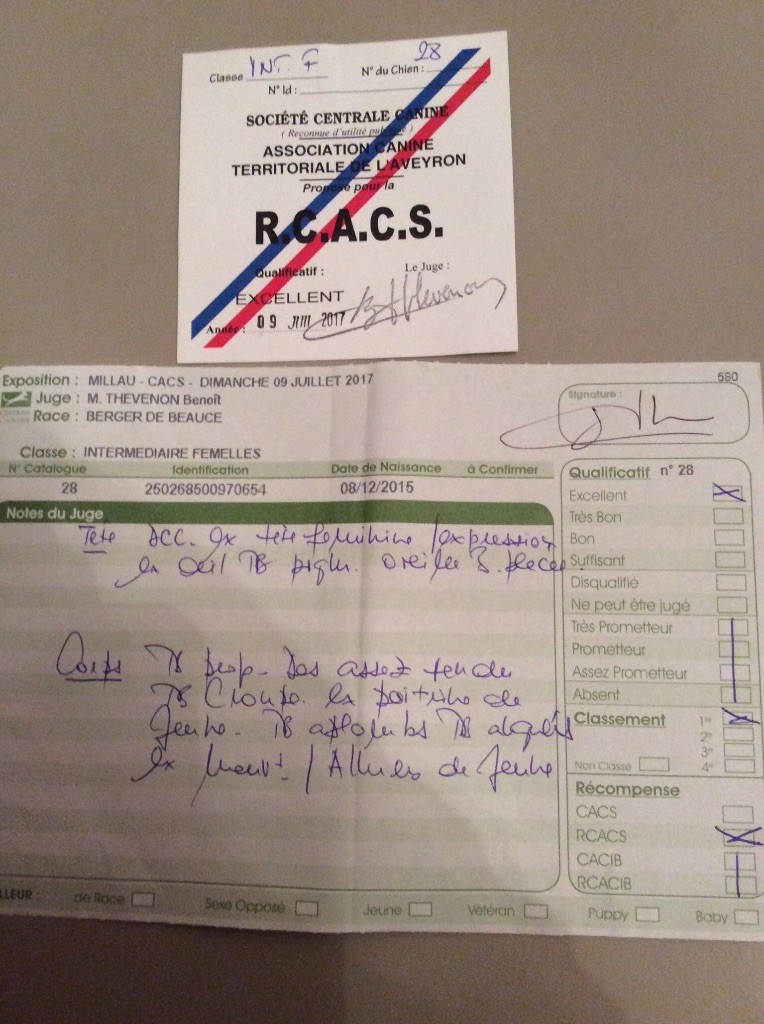 Classe INT. F N° du Chien : 28
N° Id :
SOCIÉTÉ CENTRALE CANINE
( Reconnue d'utilité publique )
ASSOCIATION CANINE
TERRITORIALE DE L'AVEYRON
Propose pour la
R.C.A.C.S.
Qualificatif : Le Juge :
EXCELLENT Thevenon
Année : 09 JUIL 2017
Exposition : MILLAU - CACS - DIMANCHE 09 JUILLET 2017 580
Juge : M. THEVENON Benoît
Race : BERGER DE BEAUCE
Signature :
Classe : INTERMEDIAIRE FEMELLES
N° Catalogue Identification Date de Naissance à Confirmer
28 250268500970654 08/12/2015
Qualificatif n° 28
Excellent
Très Bon
Bon
Suffisant
Disqualifié
Ne peut être jugé
Très Prometteur
Prometteur
Assez Prometteur
Absent
Classement 1er
2e
3e
Non Classé 4e
Récompense
CACS
RCACS
CACIB
RCACIB
Notes du Juge
Tête ex tête féminine / expression
ex oeil TB pigm. oreilles B. placées
Corps TB prop. Dos assez tendu
TB Croupe. ex poitrine de
Jeune. TB aplombs TB
ex mouvt. / Allures de Jeune
LLEUR : de Race Sexe Opposé Jeune Vétéran Puppy Baby